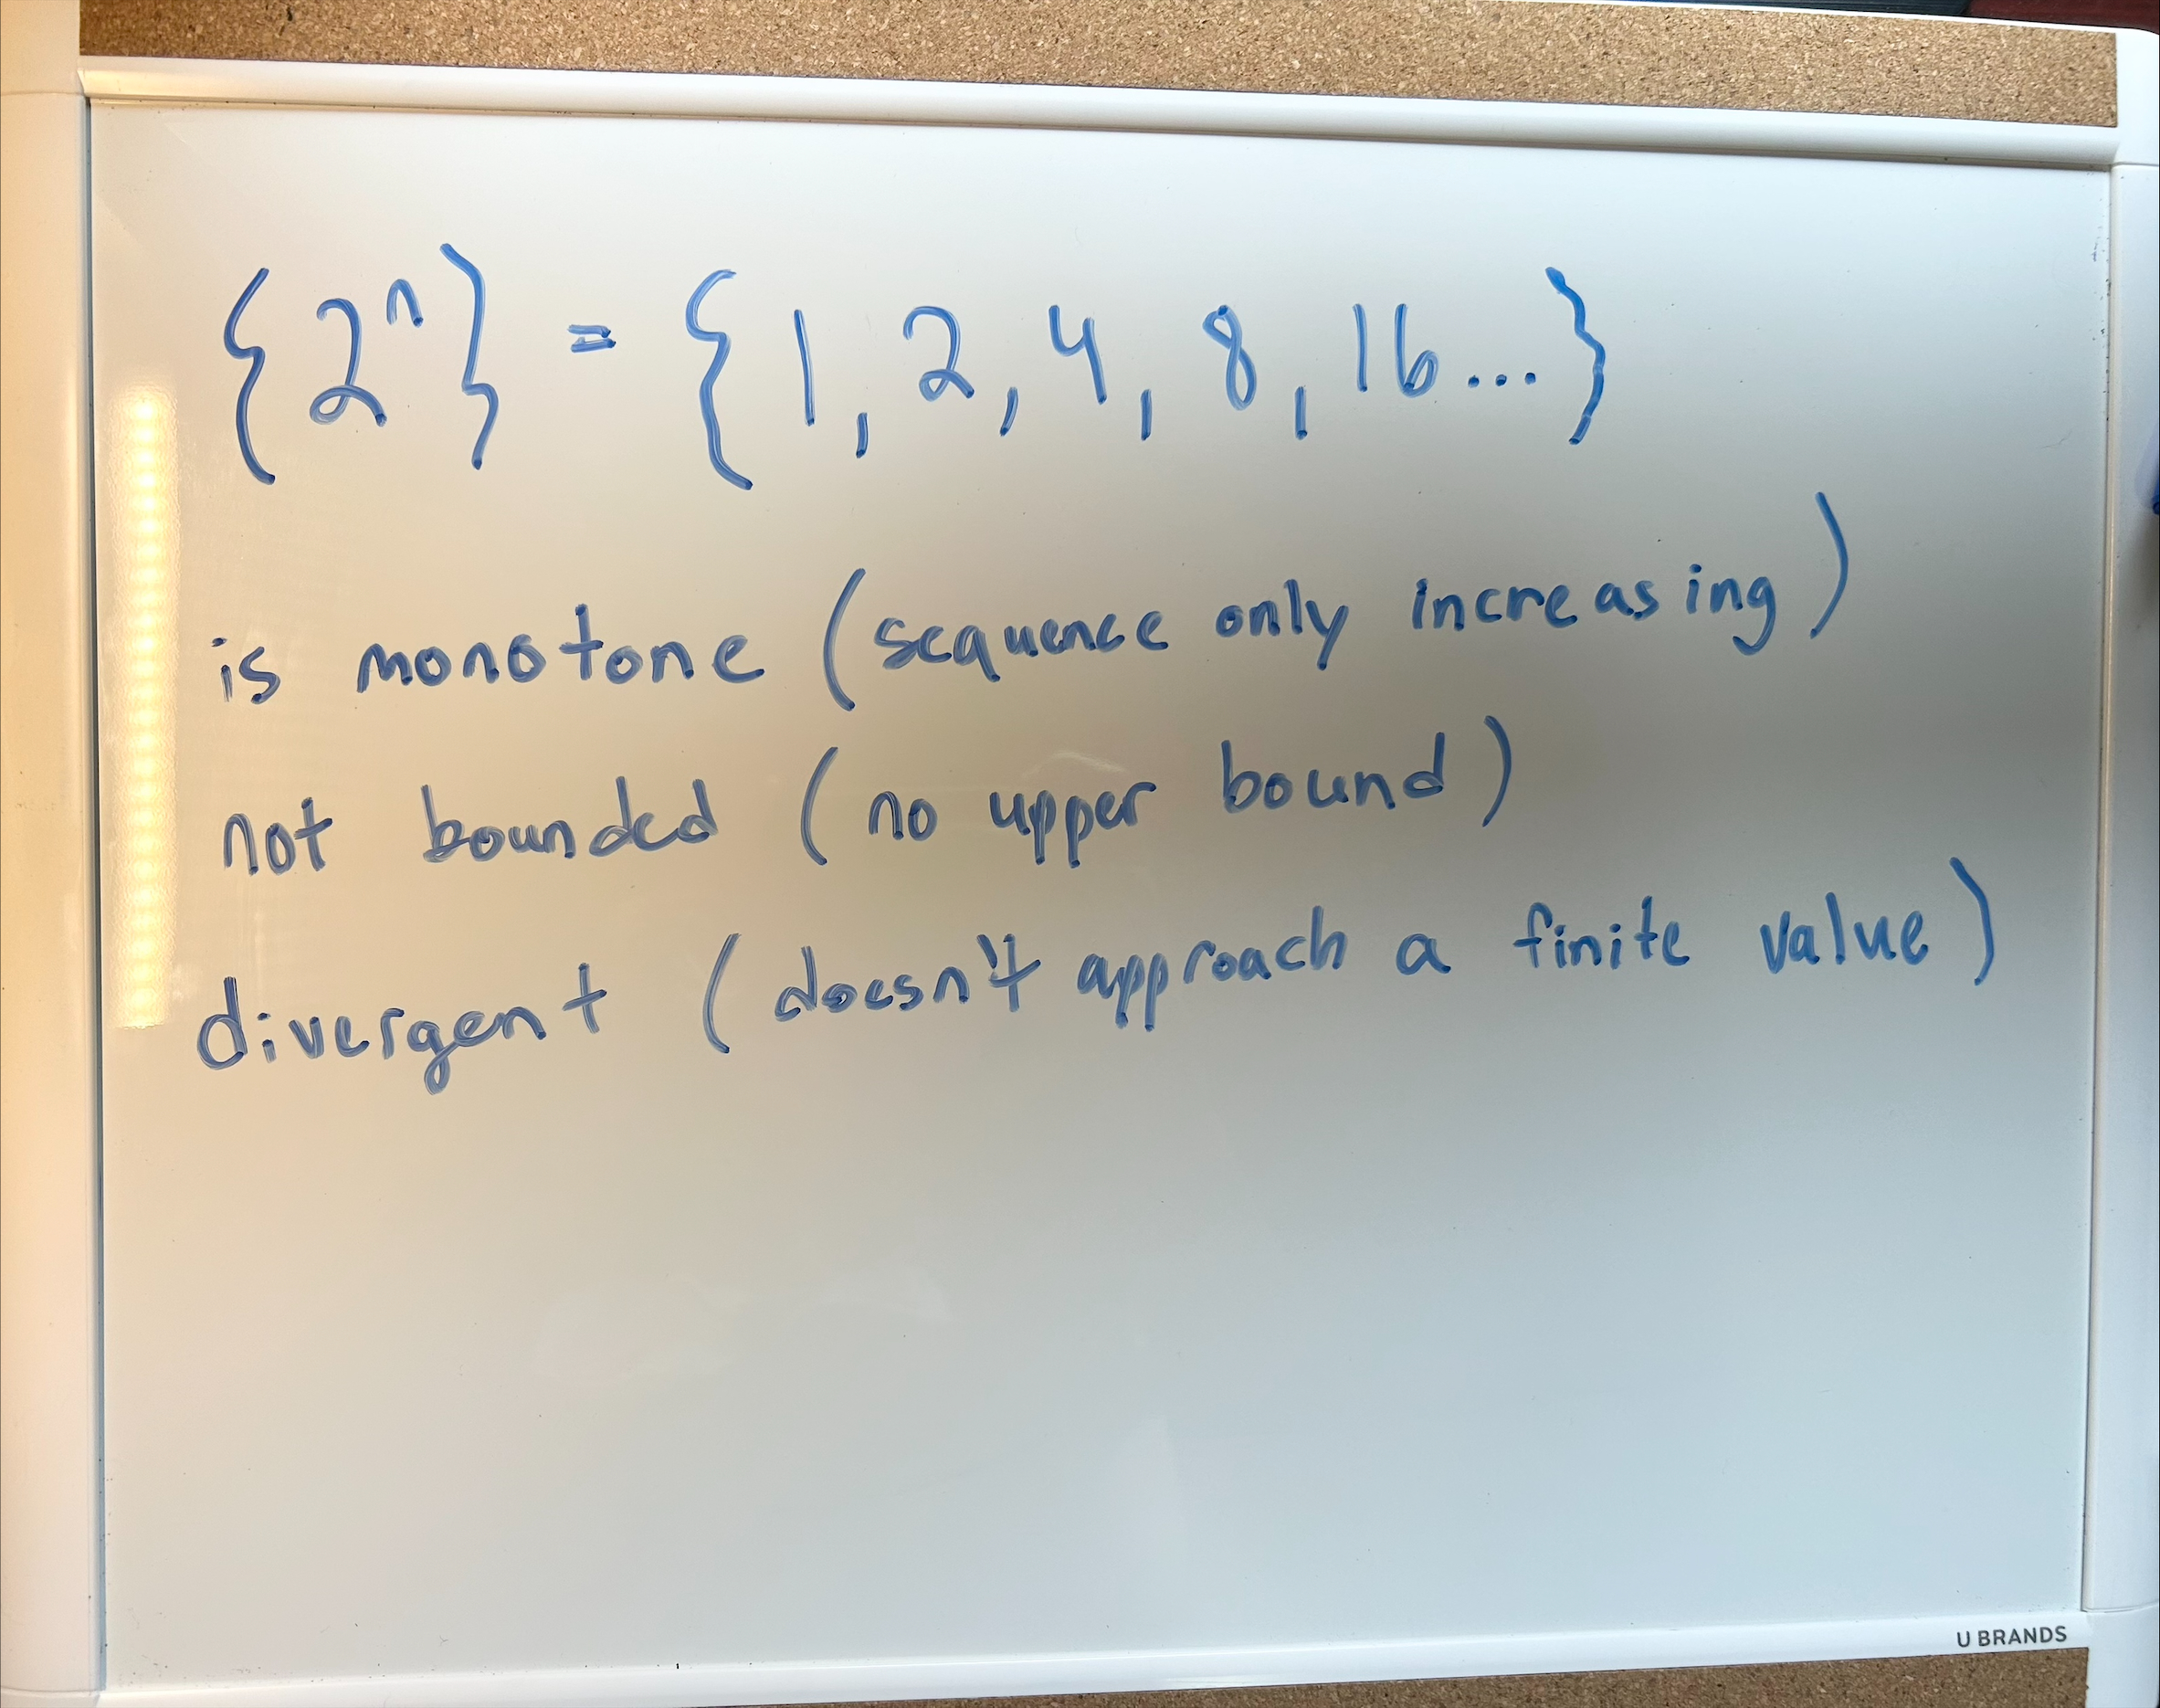 {2ⁿ} = {1, 2, 4, 8, 16...}
is monotone (sequence only increasing)
not bounded (no upper bound)
divergent (doesn't approach a finite value)
U BRANDS